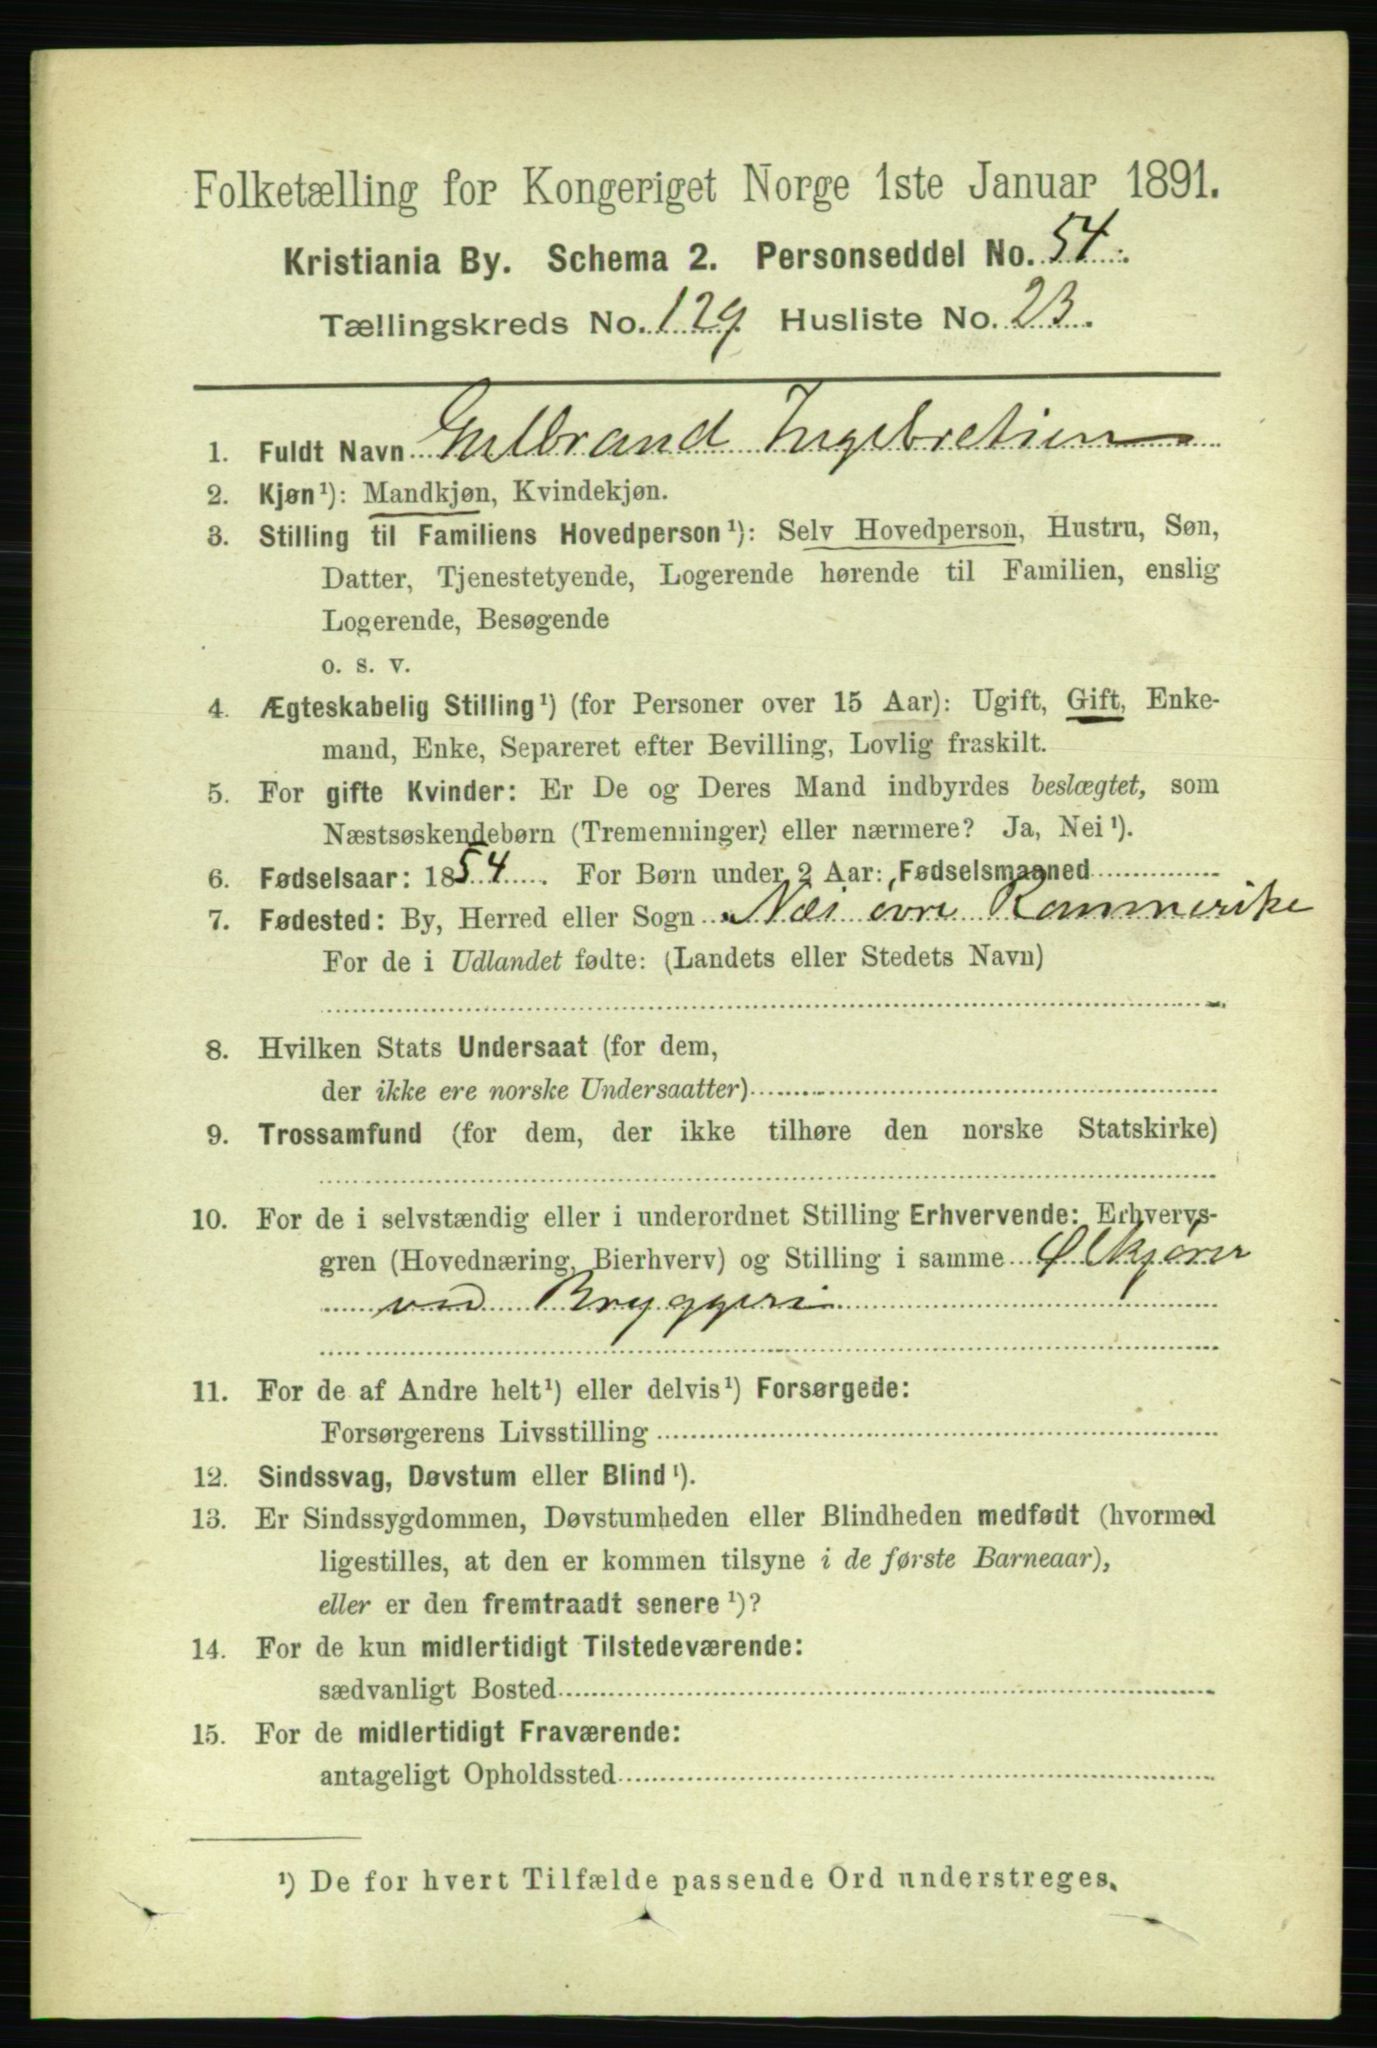 Folketælling for Kongeriget Norge 1ste Januar 1891.
Kristiania By. Schema 2. Personseddel No. 54.
Tællingskreds No. 129 Husliste No. 23.
1. Fuldt Navn Gulbrand Ingebretsen
2. Kjøn¹): Mandkjøn, Kvindekjøn.
3. Stilling til Familiens Hovedperson¹): Selv Hovedperson, Hustru, Søn,
Datter, Tjenestetyende, Logerende hørende til Familien, enslig
Logerende, Besøgende
o. s. v.
4. Ægteskabelig Stilling¹) (for Personer over 15 Aar): Ugift, Gift, Enke-
mand, Enke, Separeret efter Bevilling, Lovlig fraskilt.
5. For gifte Kvinder: Er De og Deres Mand indbyrdes beslægtet, som
Næstsøskendebørn (Tremenninger) eller nærmere? Ja, Nei¹).
6. Fødselsaar: 1854. For Børn under 2 Aar: Fødselsmaaned
7. Fødested: By, Herred eller Sogn Næs øvre Rommerike
For de i Udlandet fødte: (Landets eller Stedets Navn)
8. Hvilken Stats Undersaat (for dem,
der ikke ere norske Undersaatter)
9. Trossamfund (for dem, der ikke tilhøre den norske Statskirke)
10. For de i selvstændig eller i underordnet Stilling Erhvervende: Erhvervs-
gren (Hovednæring, Bierhverv) og Stilling i samme Ølkjører
ved Bryggeri
11. For de af Andre helt¹) eller delvis¹) Forsørgede:
Forsørgerens Livsstilling
12. Sindssvag, Døvstum eller Blind¹).
13. Er Sindssygdommen, Døvstumheden eller Blindheden medfødt (hvormed
ligestilles, at den er kommen tilsyne i de første Barneaar),
eller er den fremtraadt senere¹)?
14. For de kun midlertidigt Tilstedeværende:
sædvanligt Bosted
15. For de midlertidigt Fraværende:
antageligt Opholdssted
¹) De for hvert Tilfælde passende Ord understreges.